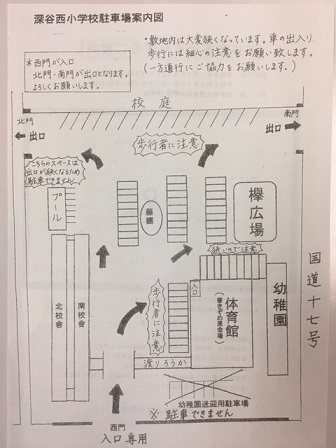 深谷西小学校駐車場案内図
・敷地内は大変狭くなっています。車の出入り、
歩行には細心の注意をお願い致します。
(一方通行にご協力をお願いします。)
*西門が入口
北門・南門が出口となります。
よろしくお願いします。
校庭
北門
出口
南門
出口
歩行者に注意
こちらのスペースは
出口が狭くなるため
駐車できません
プール
藤棚
欅広場
狭いので注意
国道十七号
北校舎
南校舎
歩行者に注意
入口
体育館
(書きぞめ展会場)
幼稚園
渡りろうか
幼稚園送迎用駐車場
※駐車できません
西門
入口専用